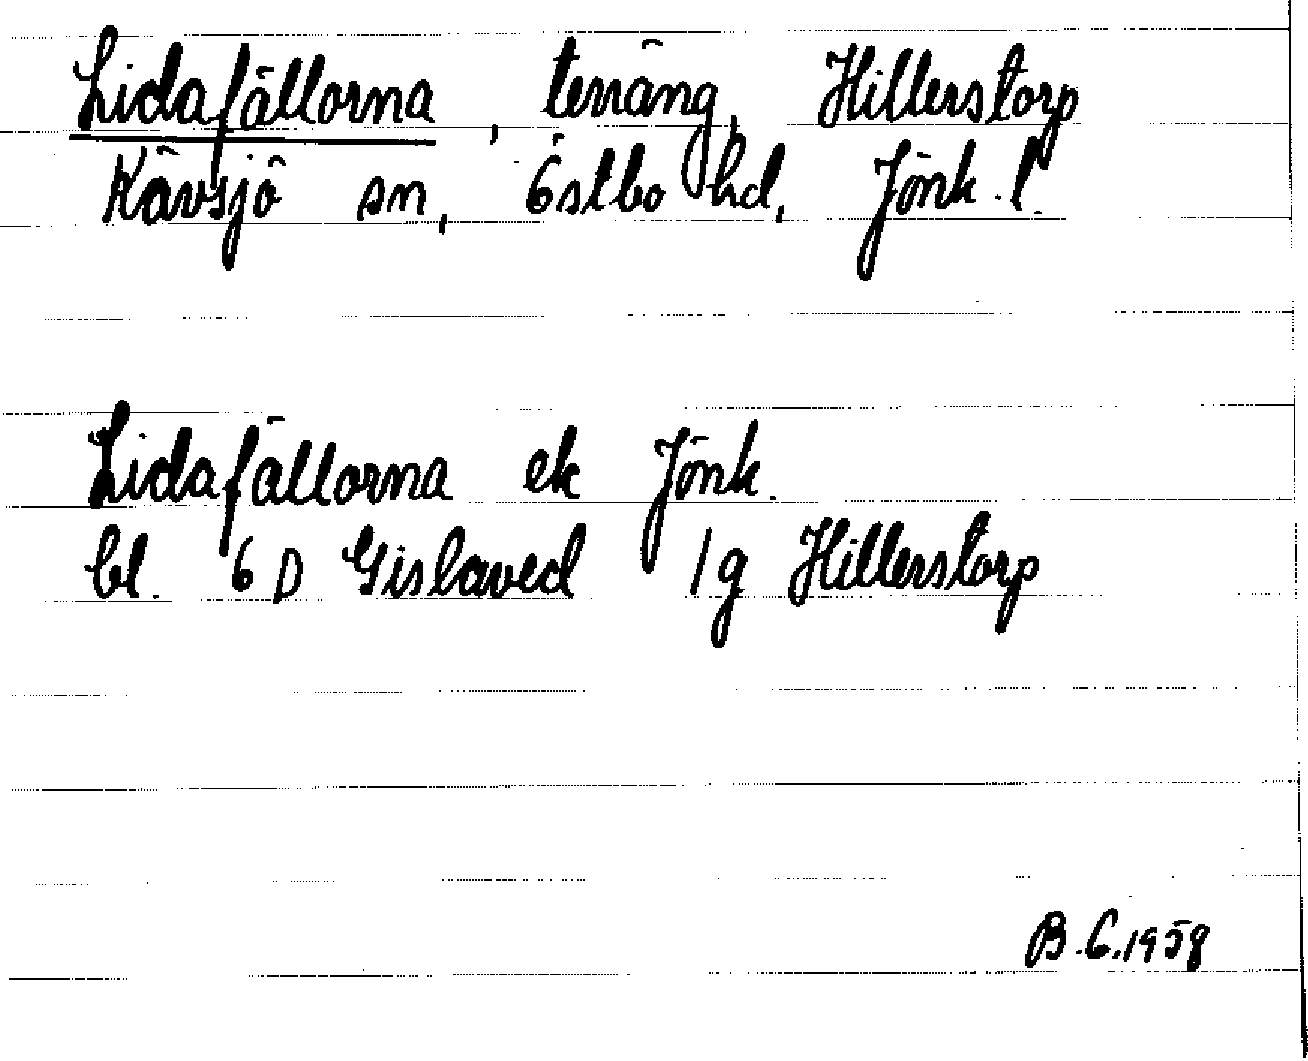 Lidafällorna, terräng, Hillerstorp
Kävsjö sn, Östbo hd, Jönk. l.
Lidafällorna ek Jönk.
bl. 6 D Gislaved 1g Hillerstorp
B.C. 1958